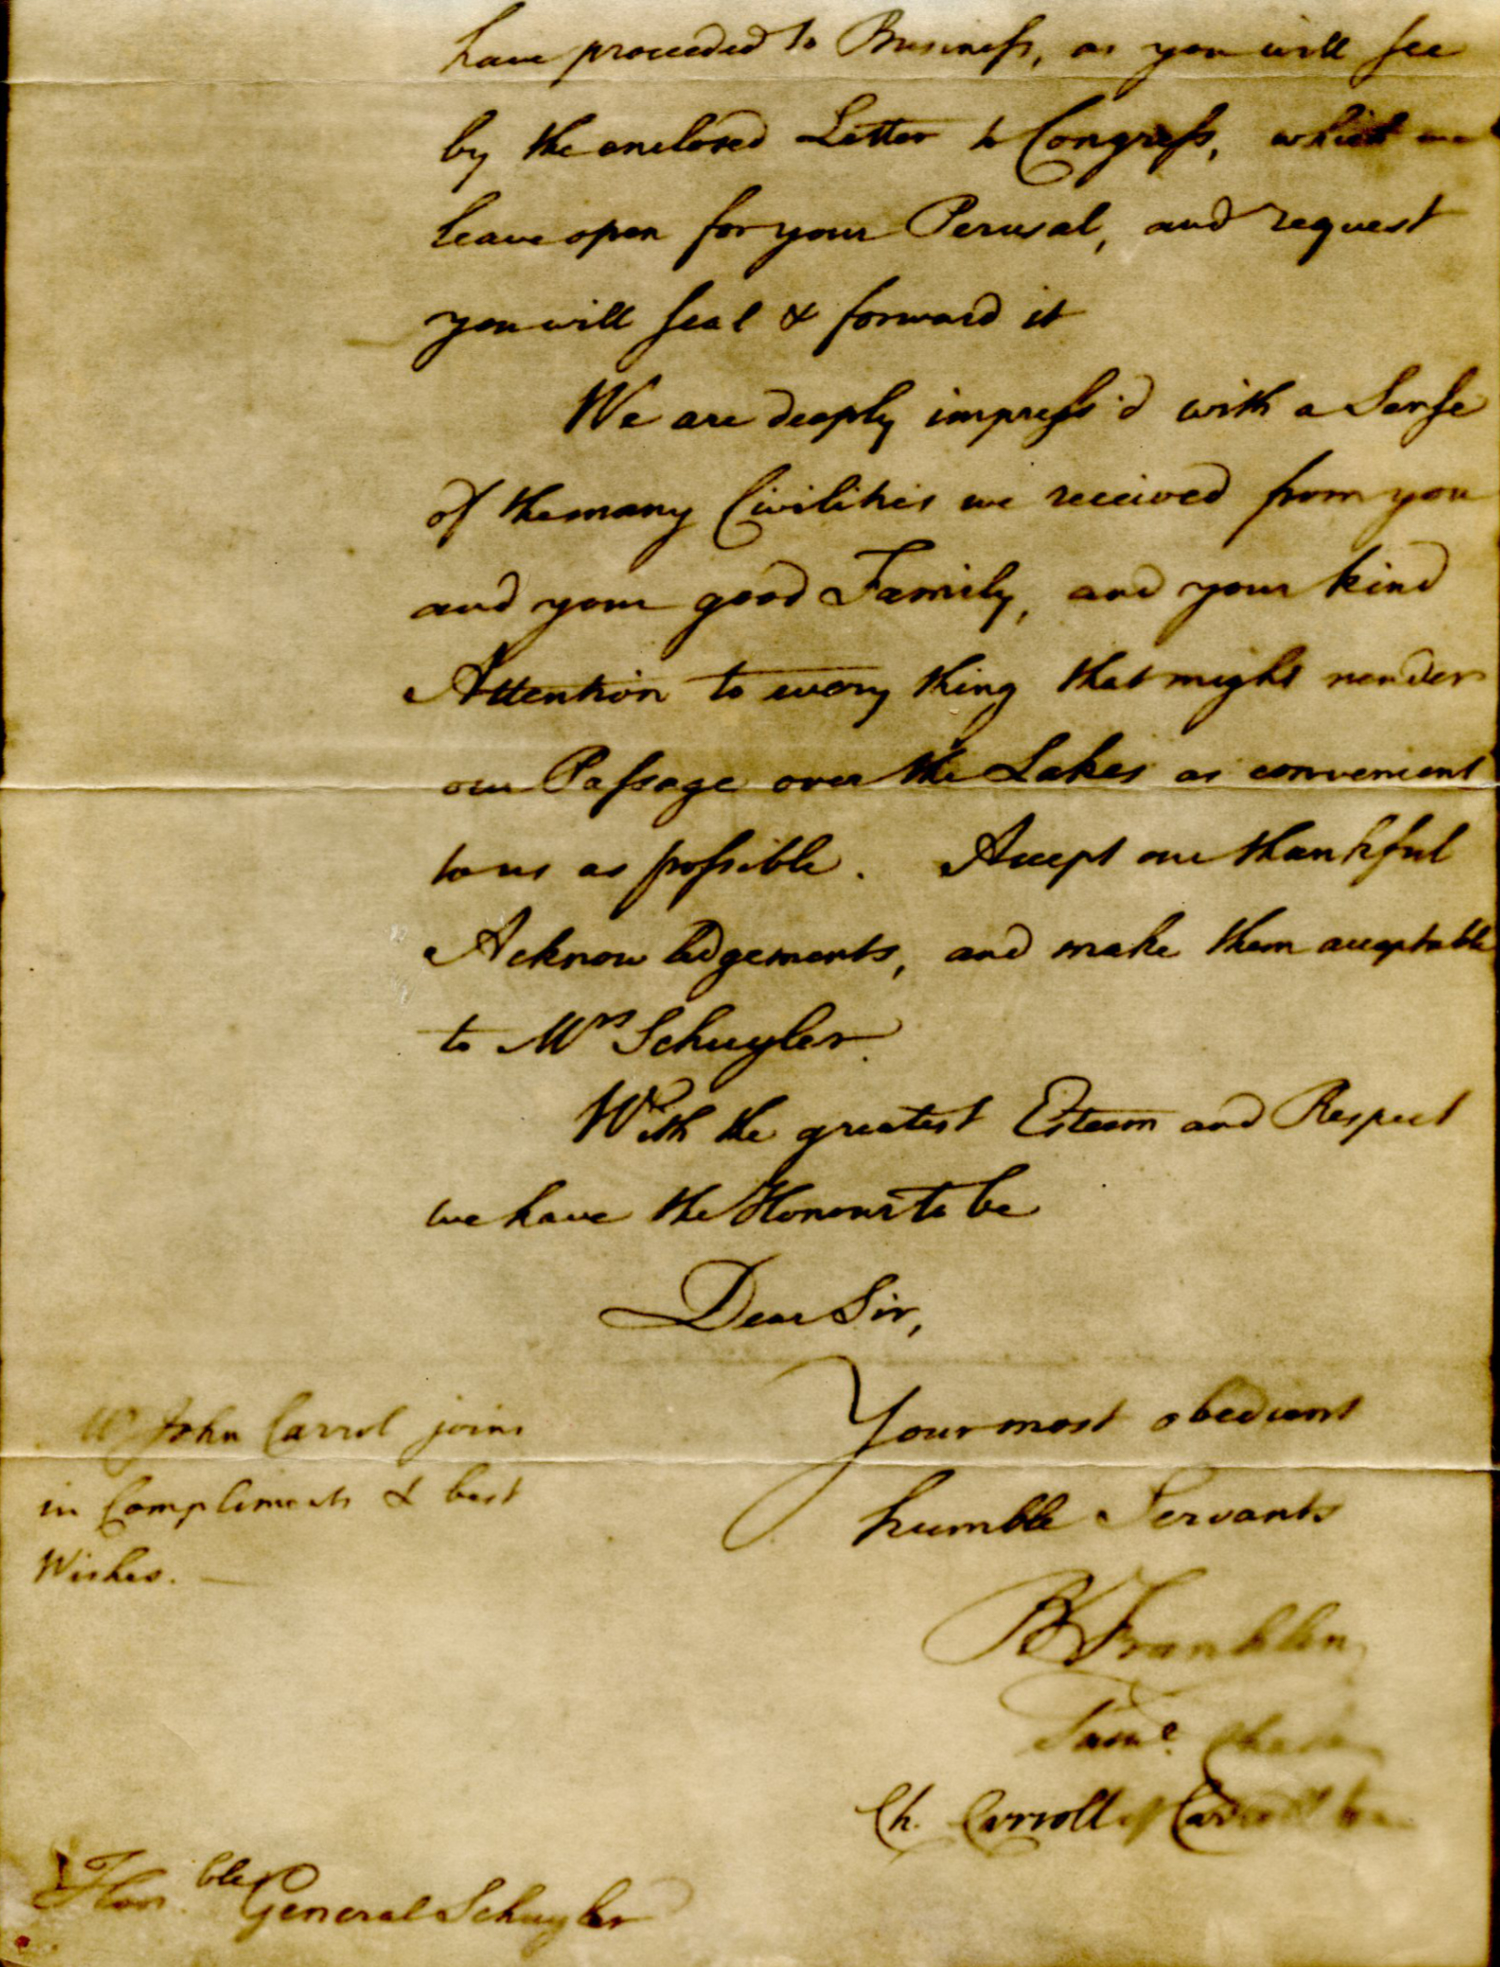 have proceeded to Business, as you will see
by the enclosed Letter to Congress, which we
leave open for your Perusal, and request
you will seal & forward it
We are deeply impress'd with a Sense
of the many Civilities we received from you
and your good Family, and your kind
Attention to every thing that might render
our Passage over the Lakes as convenient
to us as possible. Accept our thankful
Acknowledgements, and make them acceptable
to Mrs Schuyler.
With the greatest Esteem and Respect
we have the Honour to be
Dear Sir,
Your most obedient
humble Servants
B Franklin
Saml. Chase
Ch. Carroll of Carrollton
Mr John Carrol joins
in Compliments & best
Wishes. —
Honble General Schuyler